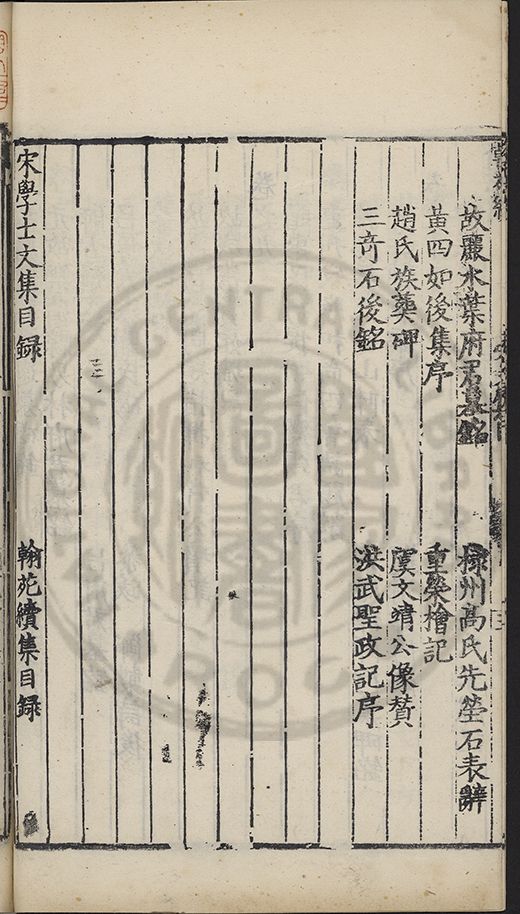 故麗水葉府君墓銘
棣州高氏先塋石表辭
黃四如後集序
重榮檜記
趙氏族葬碑
虞文靖公像贊
三奇石後銘
洪武聖政記序
宋學士文集目録
翰苑續集目録